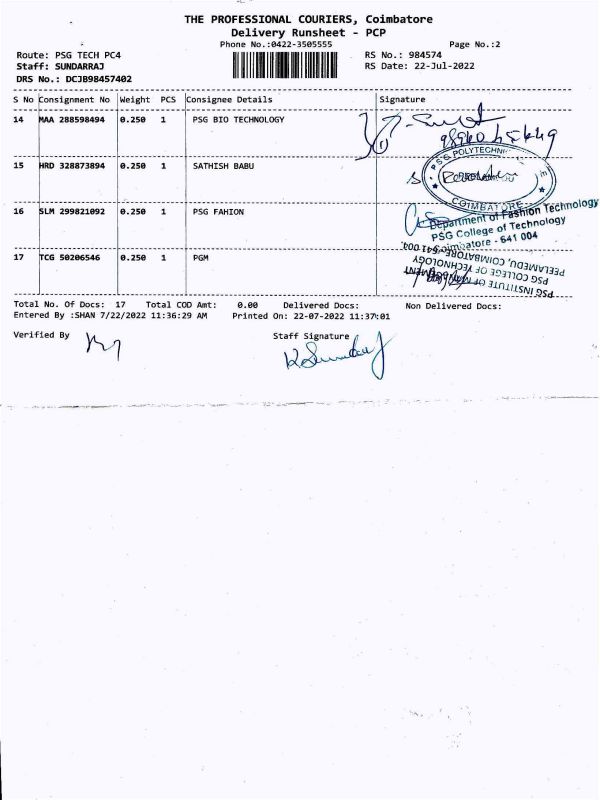 THE PROFESSIONAL COURIERS, Coimbatore
Delivery Runsheet - PCP
Phone No.:0422-3505555 Page No.:2
Route: PSG TECH PC4 RS No.: 984574
Staff: SUNDARRAJ RS Date: 22-Jul-2022
DRS No.: DCJB98457402
S No Consignment No Weight PCS Consignee Details Signature
14 MAA 288598494 0.250 1 PSG BIO TECHNOLOGY
15 HRD 328873894 0.250 1 SATHISH BABU
PSG POLYTECHNIC
COIMBATORE
16 SLM 299821092 0.250 1 PSG FAHION
Department of Fashion Technology
PSG College of Technology
Coimbatore - 641 004
17 TCG 50206546 0.250 1 PGM
PSG INSTITUTE OF MANAGEMENT
PSG COLLEGE OF TECHNOLOGY
PEELAMEDU, COIMBATORE-641 004.
Total No. Of Docs: 17 Total COD Amt: 0.00 Delivered Docs: Non Delivered Docs:
Entered By :SHAN 7/22/2022 11:36:29 AM Printed On: 22-07-2022 11:37:01
Verified By Staff Signature